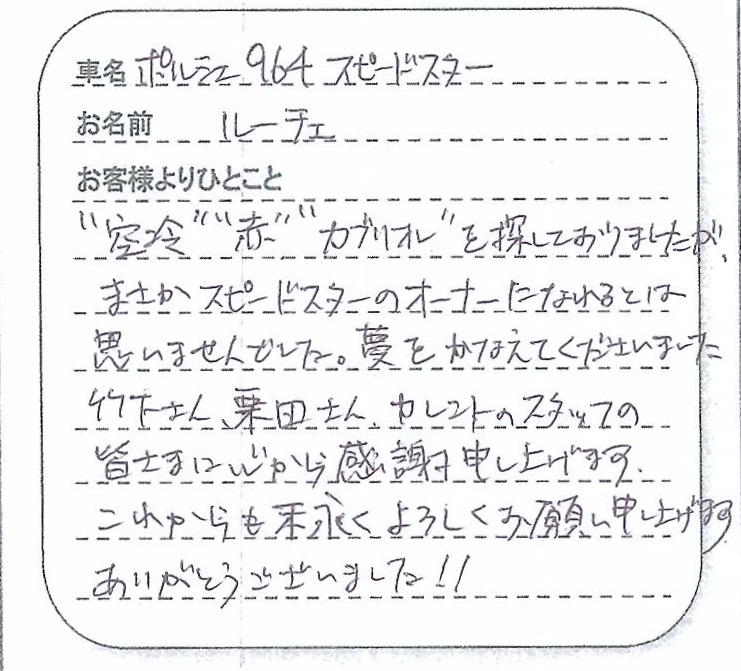 車名 ポルシェ964 スピードスター
お名前 ルーチェ
お客様よりひとこと
"空冷""赤""カブリオレ"を探しておりましたが、
まさかスピードスターのオーナーになれるとは
思いませんでした。夢をかなえてくださいました
竹下さん、栗田さん、カレントのスタッフの
皆さまに心から感謝申し上げます.
これからも末永くよろしくお願い申し上げます
ありがとうございました!!